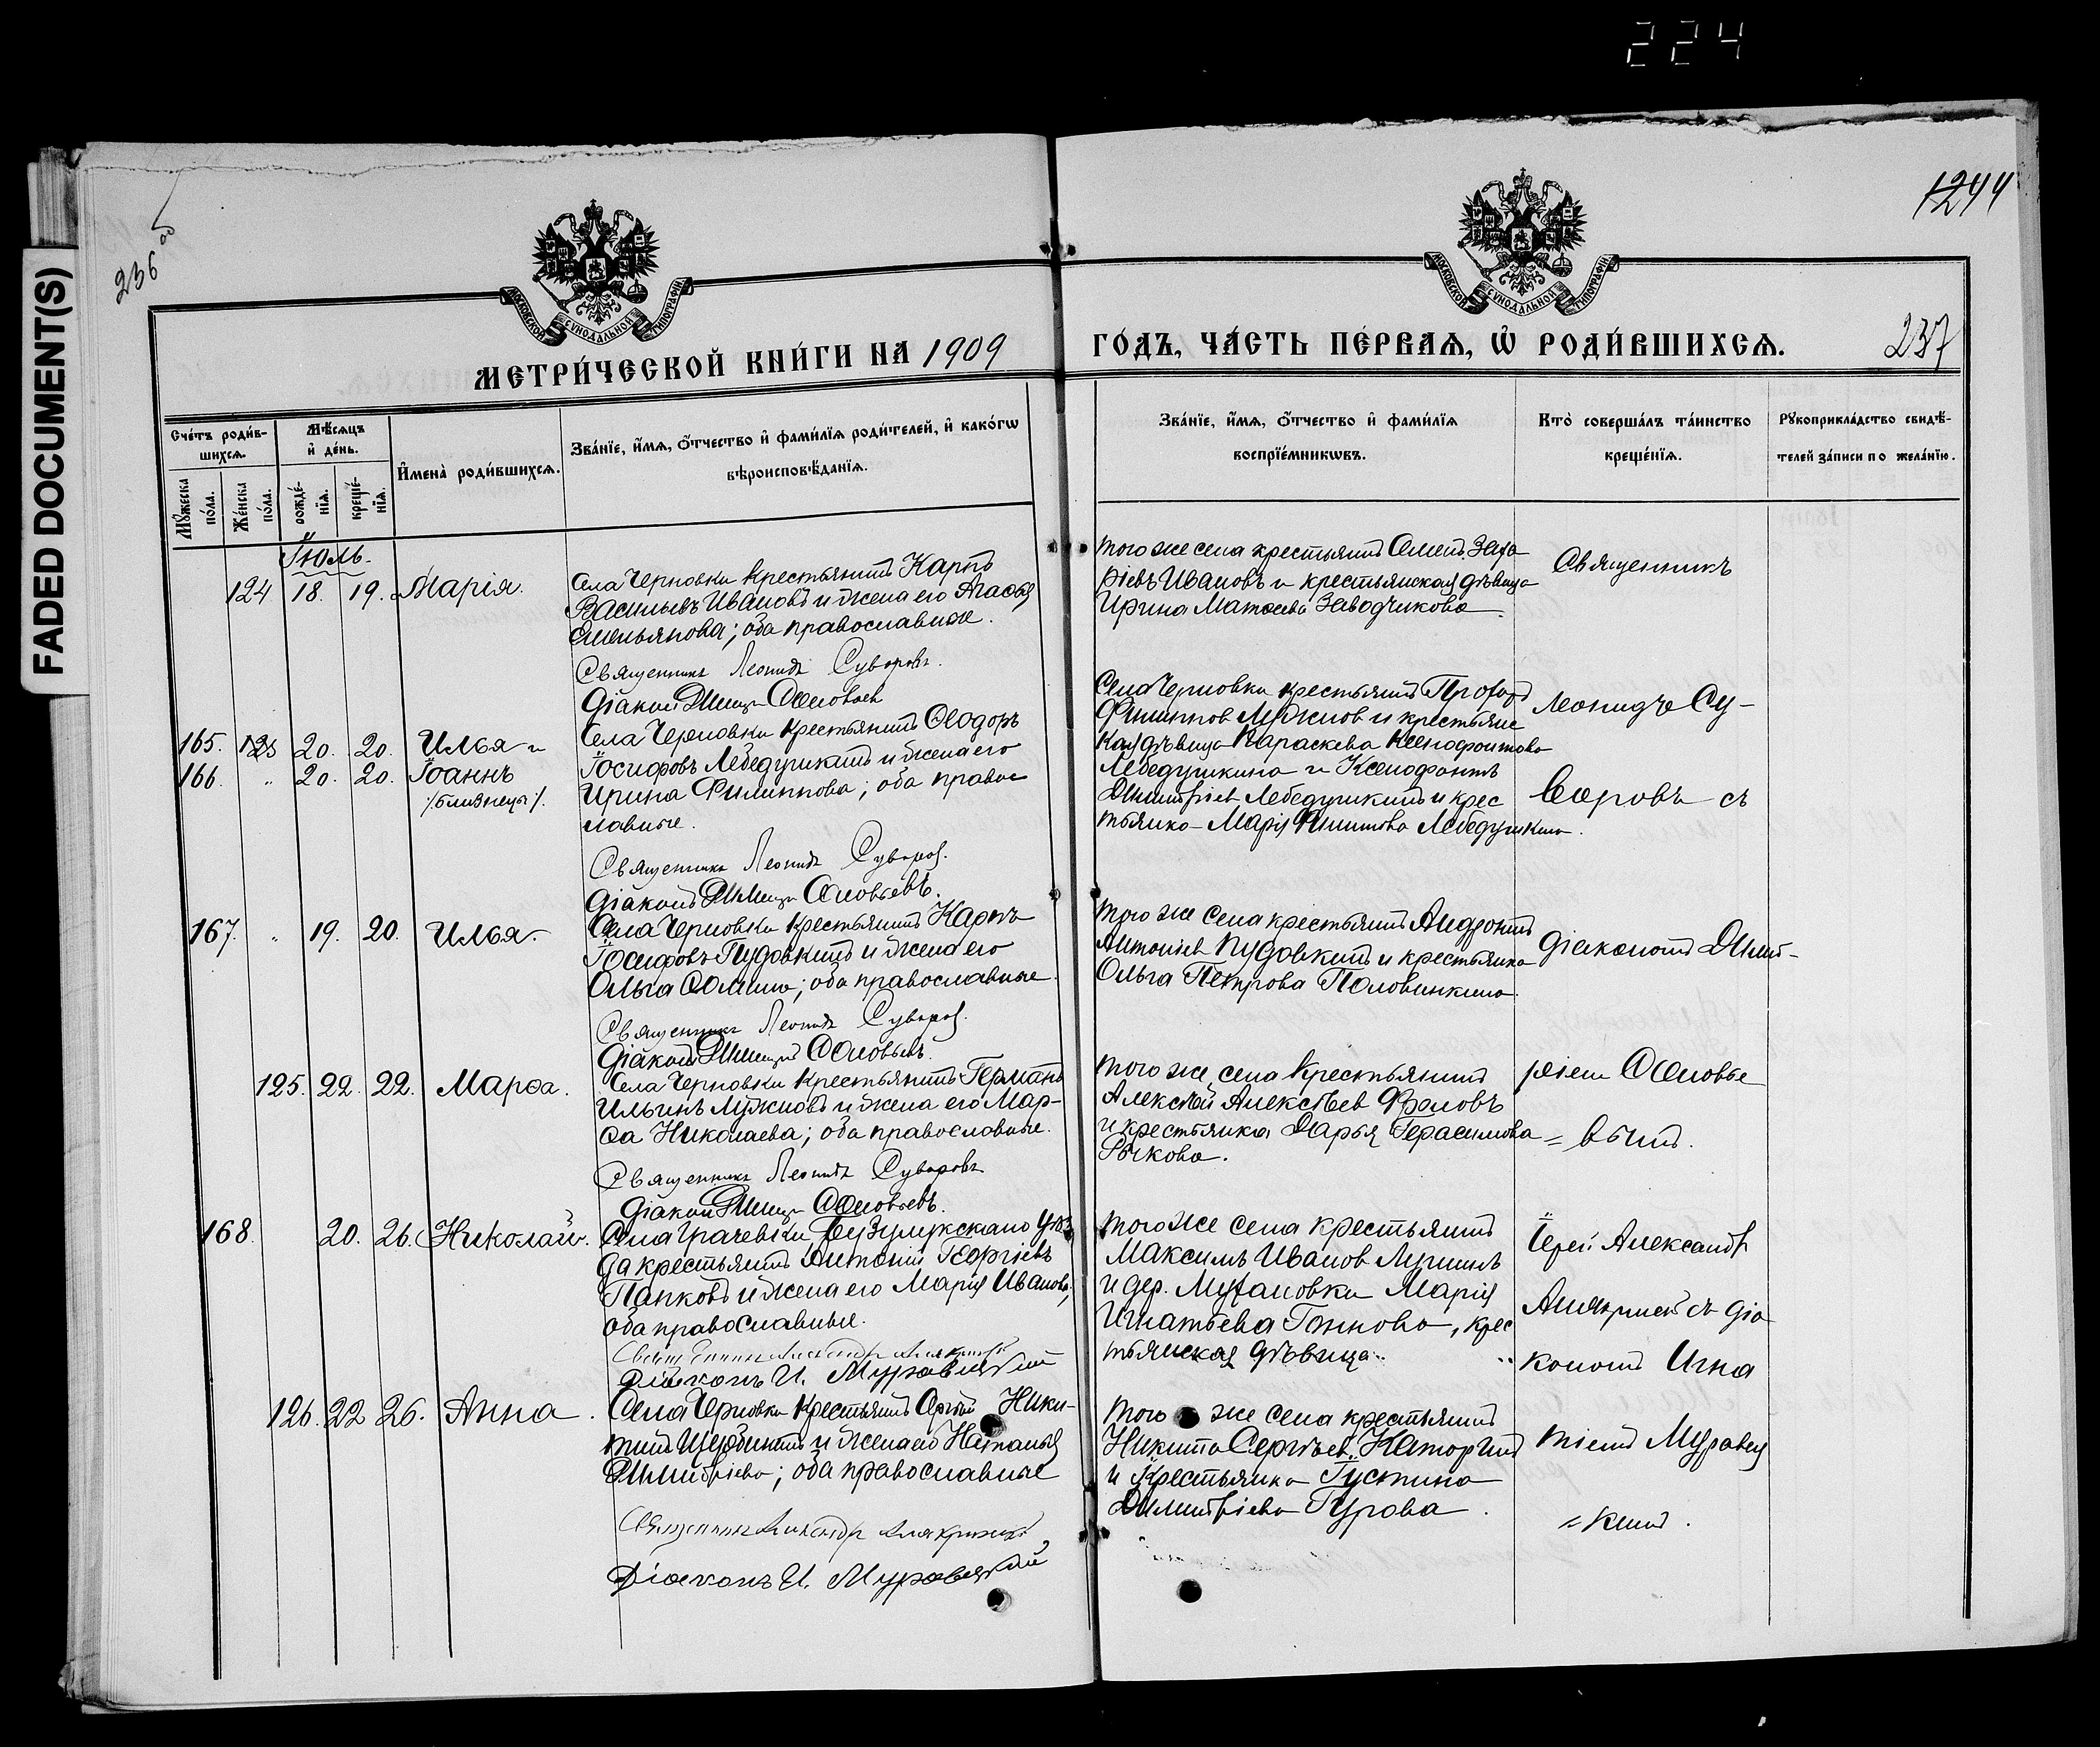 224
FADED DOCUMENT(S)
236 об
1244
237
МОСКОВСКОЙ СѴНОДАЛЬНОЙ ТИПОГРАФІИ
МОСКОВСКОЙ СѴНОДАЛЬНОЙ ТИПОГРАФІИ
МЕТРИ́ЧЕСКОЙ КНИ́ГИ НА 1909
ГО́ДЪ, ЧА́СТЬ ПЕ́РВАѦ, Ѡ҆ РОДИ́ВШИХСѦ.
Сче́тъ роди́в-
шихсѧ.
Мꙋ́жеска по́ла.
Же́нска по́ла.
Мѣ́сѧцъ
и҆ де́нь.
рожде́-
нїѧ.
креще́-
нїѧ.
И҆мена̀ роди́вшихсѧ.
Зва́нїе, и҆́мѧ, ѻ҆́тчество и҆ фами́лїѧ роди́телей, и҆ како́гѡ
вѣроисповѣ́данїѧ.
Зва́нїе, и҆́мѧ, ѻ҆́тчество и҆ фами́лїѧ
воспрїе́мникѡвъ.
Кто̀ соверша́лъ та́инство
креще́нїѧ.
Рꙋкоприкла́дство свидѣ́-
телей за́писи по жела́нїю.
Іюль.
124 18. 19. Марія.
Села Черновки крестьянинъ Карпъ
Васильевъ Ивановъ и жена его Агафья
Емельянова; оба православные.
Священникъ Леонидъ Суворовъ.
Діаконъ Димитр Соловьевъ
того же села крестьянинъ Семенъ Заха
ріевъ Ивановъ и крестьянская дѣвица
Ирина Матѳеева Заводчикова
Священникъ
165. 20. 20. Илья и
166. " 20. 20. Іоаннъ
/близнецы/.
Села Черновки крестьянинъ Ѳеодоръ
Іосифовъ Лебедушкинъ и жена его
Ирина Филиппова; оба право
славные.
Священникъ Леонидъ Суворов.
Діаконъ Димитр Соловьевъ.
Села Черновки крестьянинъ Прохоръ
Филиппов Мужнов и крестьянс
кая дѣвица Параскева Ксенофонтова
Лебедушкина и Ксенофонтъ
Димитріев Лебедушкинъ и крес
тьянка Марія Лебедушкина.
Леонидъ Су-
воровъ съ
167. " 19. 20. Илья.
Села Черновки крестьянинъ Карпъ
Іосифовъ Пудовкинъ и жена его
Ольга Ѳомина; оба православные
Священникъ Леонидъ Суворов.
Діаконъ Димитрій Соловьевъ.
того же села крестьянинъ Андронъ
Антоніев Пудовкинъ и крестьянка
Ольга Петрова Половинкина.
діакономъ Димит-
125. 22. 22. Марѳа.
Села Черновки крестьянинъ Германъ
Ильинъ Мужновъ и жена его Мар-
ѳа Николаева; оба православные.
Священникъ Леонидъ Суворовъ
Діаконъ Димитр Соловьевъ.
того же села крестьянинъ
Алексѣй Алексѣев Фроловъ
и крестьянка Дарья Герасимова
Рычкова.
ріем Соловье
= вымъ.
168. 20. 26. Николай.
Села Грачевки, Бузулукскаго уѣз
да крестьянинъ Антоній Георгіевъ
Папковъ и жена его Марія Иванова;
оба православные.
Діаконъ И. Муравецкій
того же села крестьянинъ
Максимъ Иванов Лушинъ
и дер. Мухановки Марія
Игнатьева Ганнова, крес
тьянская дѣвица..
Іерей Александръ
съ діа
кономъ Игна
126. 22 26. Анна.
Села Черновки крестьянинъ Сергѣй Ники-
тинъ Щербининъ и жена его Наталья
Димитріева; оба православные
Діаконъ И. Муравецкій
того же села крестьянинъ
Никита Сергѣев Каторгинъ
и крестьянка Іустина
Димитріева Гурова.
тіемъ Муравец
= кимъ.